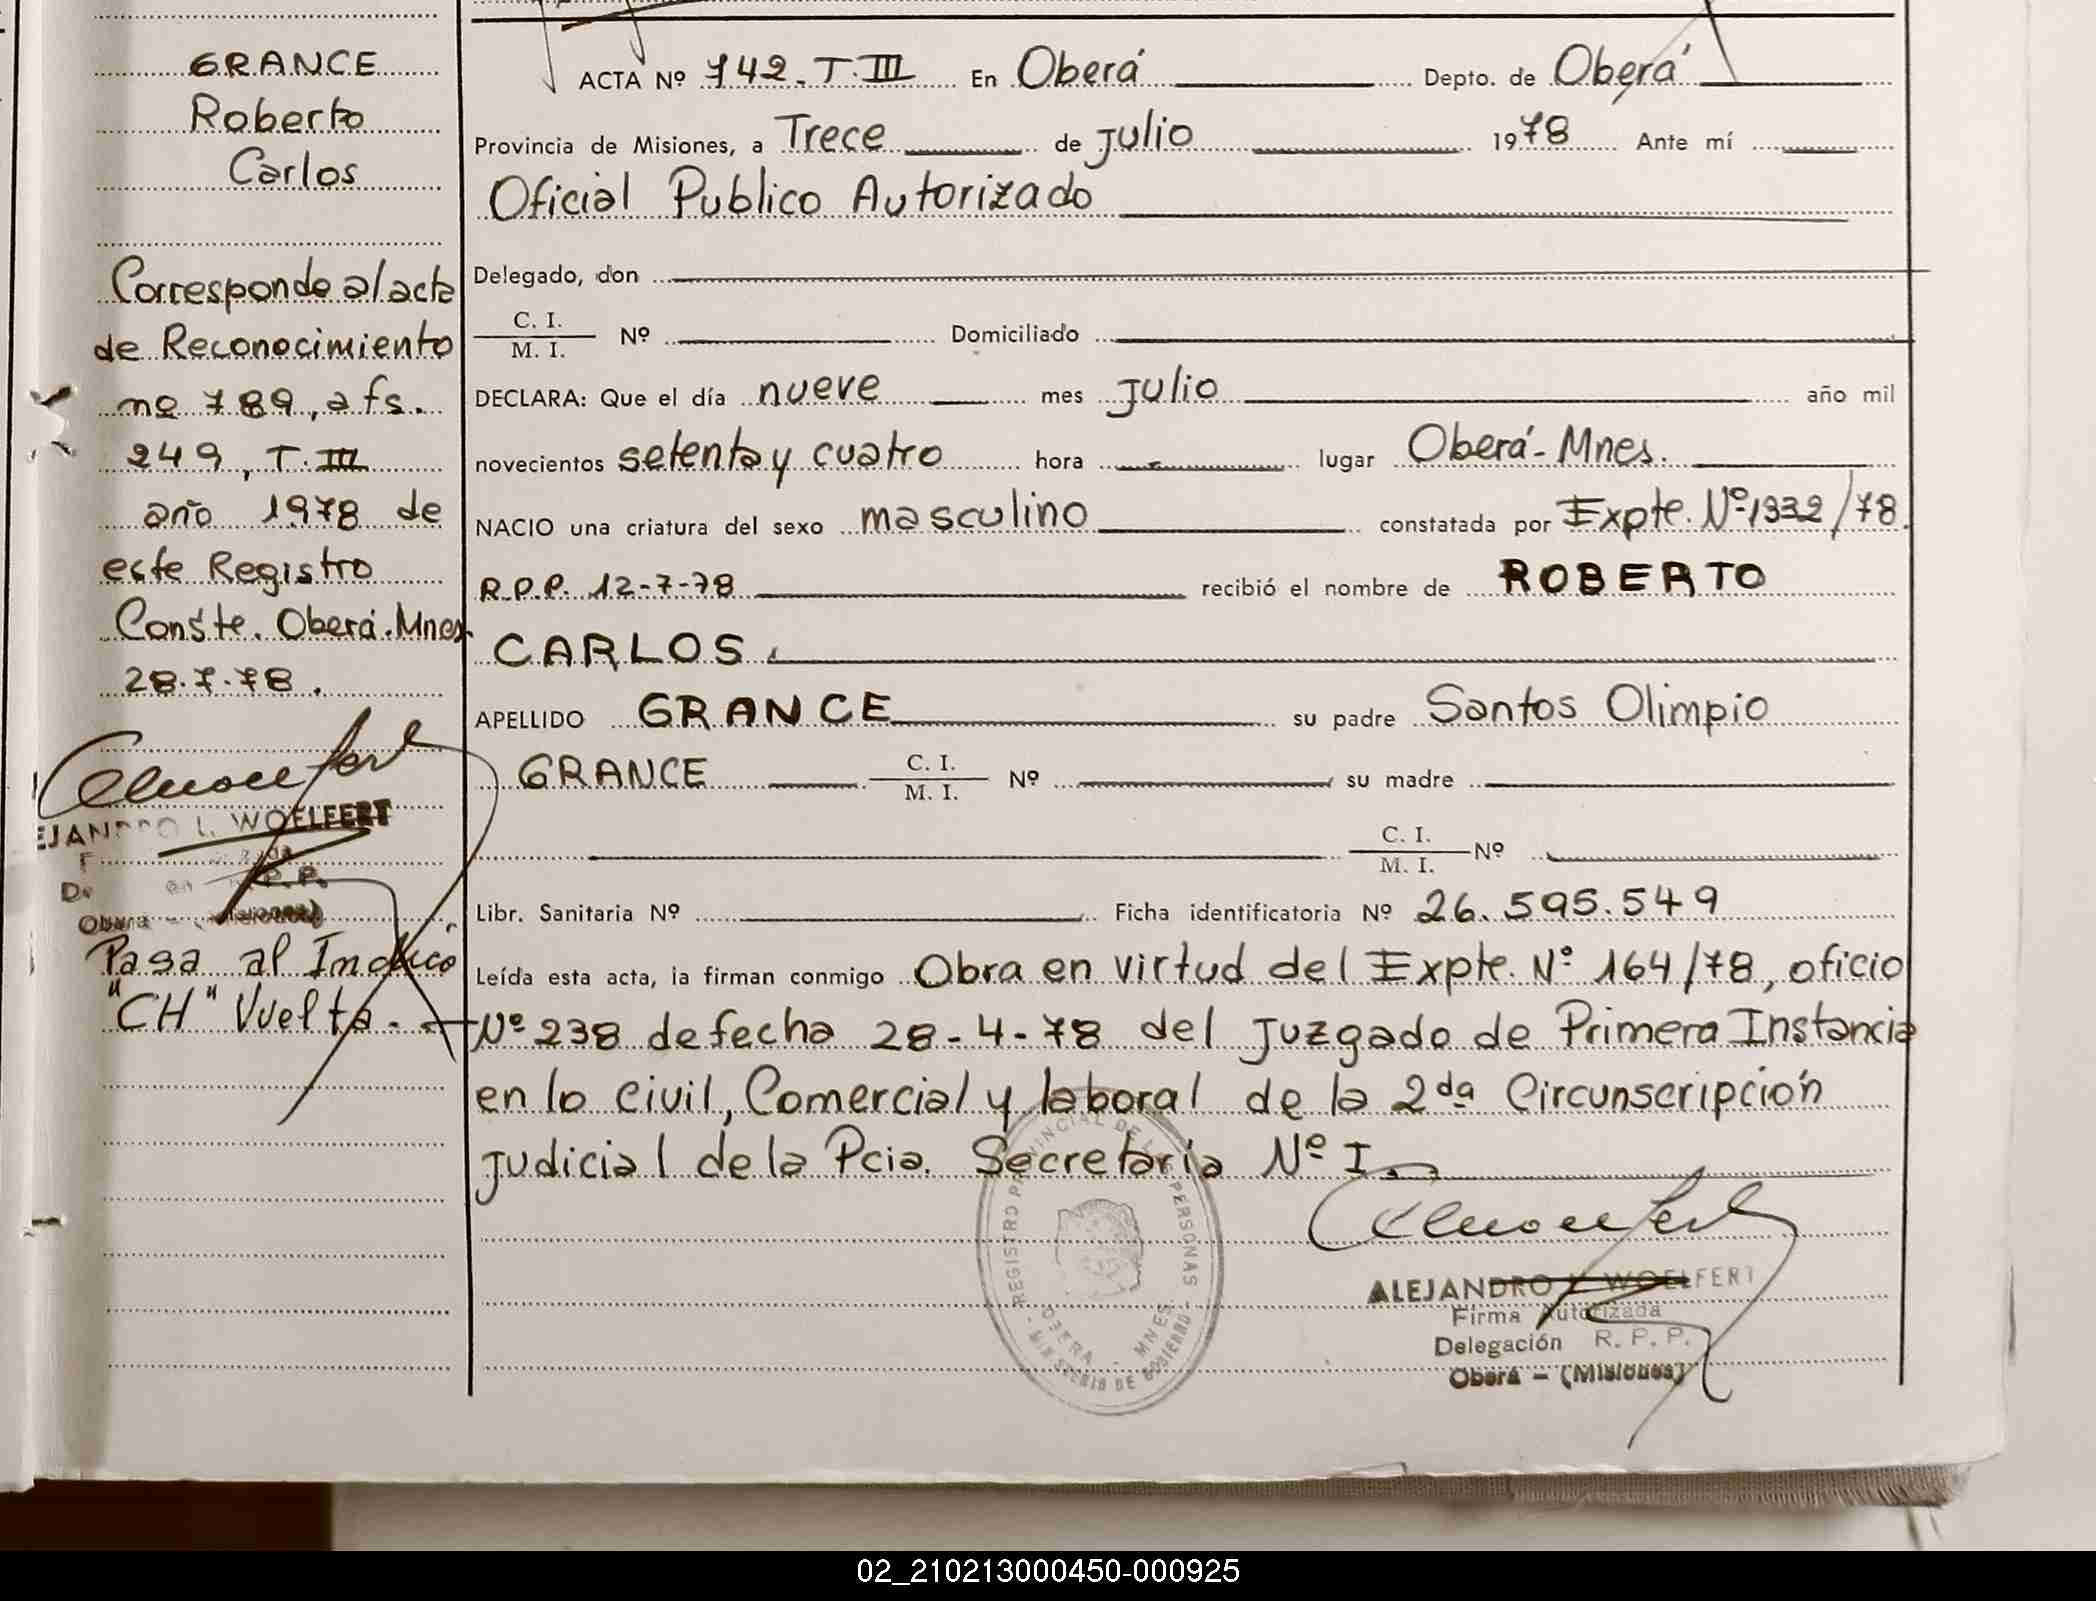 GRANCE
Roberto
Carlos
Corresponde al acta
de Reconocimiento
nº 789, a fs.
249, T. III
año 1978 de
este Registro
Conste. Oberá. Mnes.
28.7.78.
EJANDRO L. WOELFERT
R. P. P.
Oberá - (Misiones)
Pasa al Indice
"CH" Vuelta.
ACTA Nº 742. T. III En Oberá Depto. de Oberá
Provincia de Misiones, a Trece de Julio 1978 Ante mí
Oficial Publico Autorizado
Delegado, don
C. I.
M. I. Nº Domiciliado
DECLARA: Que el día nueve mes Julio año mil
novecientos setenta y cuatro hora lugar Oberá- Mnes.
NACIO una criatura del sexo masculino constatada por Expte. Nº 1332/78.
R.P.P. 12-7-78 recibió el nombre de ROBERTO
CARLOS.
APELLIDO GRANCE su padre Santos Olimpio
GRANCE C. I.
M. I. Nº su madre
C. I.
M. I. Nº
Libr. Sanitaria Nº Ficha identificatoria Nº 26.595.549
Leída esta acta, la firman conmigo Obra en virtud del Expte. Nº 164/78, oficio
Nº 238 de fecha 28-4-78 del Juzgado de Primera Instancia
en lo civil, Comercial y laboral de la 2da Circunscripción
Judicial de la Pcia. Secretaria Nº I.
REGISTRO PROVINCIAL DE LAS PERSONAS
OBERA - MNES
MINISTERIO DE GOBIERNO
ALEJANDRO L. WOELFERT
Firma Autorizada
Delegación R. P. P.
Oberá - (Misiones)
02_210213000450-000925